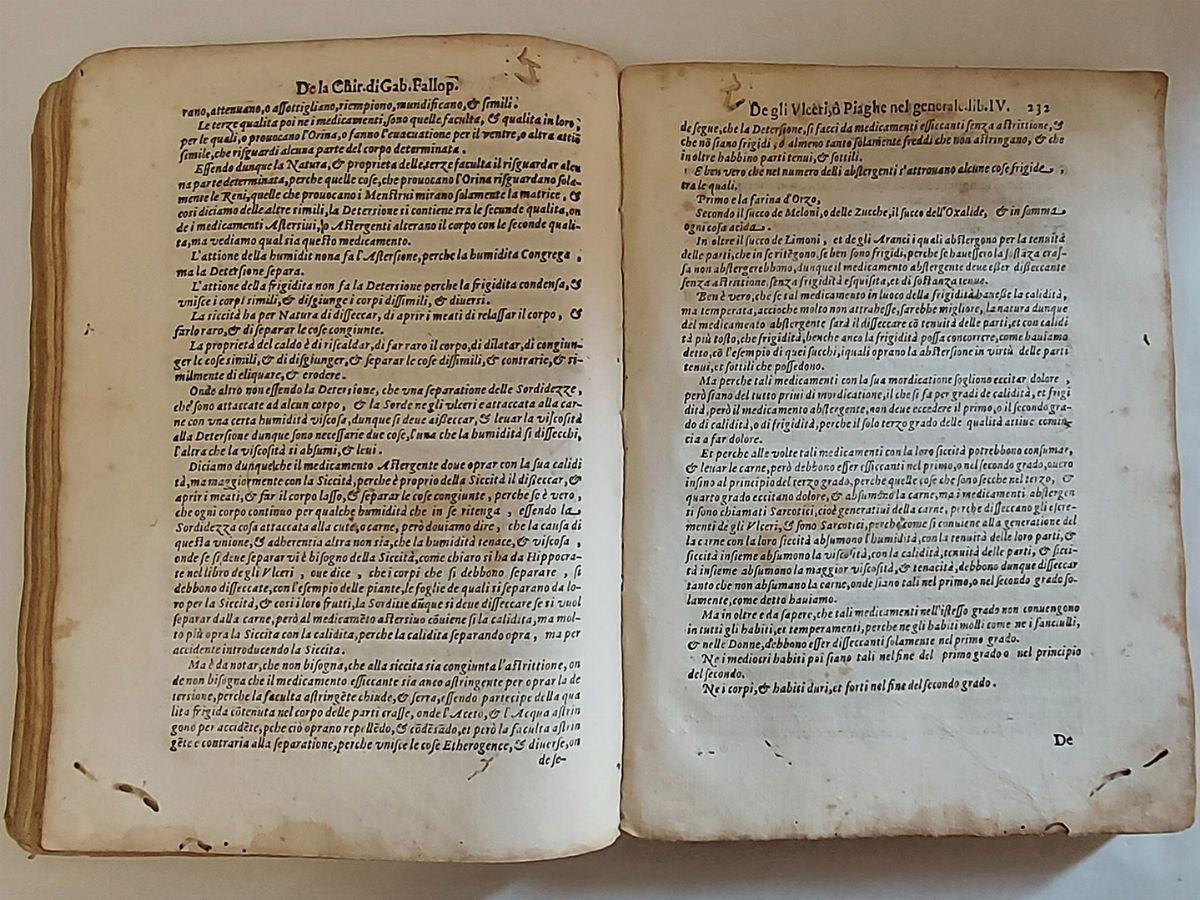 De la Chir. di Gab. Fallop.
rano, attenuano, o assottigliano, riempiono, mundificano, & simili.
Le terze qualita poi ne i medicamenti, sono quelle faculta, & qualita in loro,
per le quali, o provocano l'Orina, o fanno l'euacuatione per il ventre, o altra attiō
simile, che risguardi alcuna parte del corpo determinata.
Essendo dunque la Natura, & proprieta delle terze faculta il risguardar alcu
na parte determinata, perche quelle cose, che prouocano l'Orina risguardano sola-
mente le Reni, quelle che prouocano i Menstrui mirano solamente la matrice, &
cosi diciamo delle altre simili, la Detersione si contiene tra le secunde qualita, on
de i medicamenti Astersiui, o Astergenti alterano il corpo con le seconde quali-
ta, ma vediamo qual sia questo medicamento.
L'attione della humidit non a fa l'Astersione, perche la humidita Congrega,
ma la Detersione separa.
L'attione della frigidita non fa la Detersione perche la frigidita condensa, &
vnisce i corpi simili, & disgiunge i corpi dissimili, & diuersi.
La siccità ha per Natura di disseccar, di aprir i meati di relassar il corpo, &
farlo raro, & di separar le cose congiunte.
La proprietà del caldo è di riscaldar, di far raro il corpo, di dilatar, di congiun-
ger le cose simili, & di disgiunger, & separar le cose dissimili, & contrarie, & si-
milmente di eliquare, & erodere.
Onde altro non essendo la Detersione, che vna separatione delle Sordidezze,
che sono attaccate ad alcun corpo, & la Sorde ne gli vlceri e attaccata alla car-
ne con vna certa humidità viscosa, dunque si deue disseccar, & leuar la viscosità
alla Detersione dunque sono necessarie due cose, l'una che la humidità si dissecchi,
l'altra che la viscosità si absumi, & leui.
Diciamo dunque che il medicamento Astergente doue oprar con la sua calidi
tà, ma maggiormente con la Siccità, perche è proprio della Siccità il disseccar, &
aprir i meati, & far il corpo lasso, & separar le cose congiunte, perche se è vero,
che ogni corpo continuo per qualche humidità che in se ritenga, essendo la
Sordidezza cosa attaccata alla cute, o carne, però douiamo dire, che la causa di
questa vnione, & adherentia altra non sia, che la humidità tenace, & viscosa,
onde se si deue separar vi è bisogno della Siccità, come chiaro si ha da Hippocra-
te nel libro de gli Vlceri, oue dice, che i corpi che si debbono separare, si
debbono disseccate, con l'esempio delle piante, le foglie de quali si separano da lo-
ro per la Siccità, & cosi i loro frutti, la Sorditie dūque si deue disseccare se si vuol
separar dalla carne, però al medicamēto astersiuo cōuiene sì la calidita, ma mol-
to più opra la Siccita con la calidita, perche la calidita separando opra, ma per
accidente introducendo la Siccita.
Ma è da notar, che non bisogna, che alla siccità sia congiunta l'astrittione, on
de non bisogna che il medicamento essiccante sia anco astringente per oprar la de
tersione, perche la faculta astringēte chiude, & serra, essendo partecipe della qua
lita frigida cōtenuta nel corpo delle parti crasse, onde l'Aceto, & l'Acqua astrin
gono per accidēte, pche ciò oprano repellēdo, & cōdēsādo, et però la faculta astrin
gēte e contraria alla separatione, perche vnisce le cose Etherogence, & diuerse, on
de se-
De gli Vlceri, ò Piaghe nel generale. lib. IV. 232
de segue, che la Detersione, si facci da medicamenti essiccanti senza astrittione, &
che nō siano frigidi, ò almeno tanto solamente freddi che non astringano, & che
in oltre habbino parti tenui, & sottili.
E ben vero che nel numero delli abstergenti s'attrouano alcune cose frigide,
tra le quali.
Primo e la farina d'Orzo,
Secondo il succo de Meloni, o delle Zucche, il succo dell'Oxalide, & in somma
ogni cosa acida.
In oltre il succo de Limoni, et de gli Aranci i quali abstergono per la tenuità
delle parti, che in se ritēgono, se ben sono frigidi, perche se hauessero la sostāza cras-
sa non abstergerebbono, dunque il medicamento abstergente deue esser disseccante
senza astrittione, senza frigidità esquisita, et di sostanza tenue.
Ben è vero, che se tal medicamento in luoco della frigidità hauesse la calidità,
ma temperata, accioche molto non attrahesse, sarebbe migliore, la natura dunque
del medicamento abstergente sarà il disseccare cō tenuità delle parti, et con calidi
tà più tosto, che frigidità, benche anco la frigidità possa concorrere, come hauiamo
detto, cō l'esempio di quei succhi, i quali oprano la abstersione in virtù delle parti
tenui, et sottili che possedono.
Ma perche tali medicamenti con la sua mordicatione sogliono eccitar dolore,
però siano del tutto priui di mordicatione, il che si fa per gradi de calidità, et frigi
dità, però il medicamento abstergente, non deue eccedere il primo, o il secondo gra-
do di calidità, o di frigidità, perche il solo terzo grado delle qualità attiue comin-
cia a far dolore.
Et perche alle volte tali medicamenti con la loro siccità potrebbono consumar,
& leuar le carne, però debbono esser essiccanti nel primo, o nel secondo grado, ouero
insino al principio del terzo grado, perche quelle cose che sono secche nel terzo, &
quarto grado eccitano dolore, & absumono la carne, ma i medicamenti abstergen
si sono chiamati Sarcotici, cioè generatiui della carne, perche disseccano gli escre-
menti de gli Vlceri, & sono Sarcotici, perche come si conuiene alla generation del
la carne con la loro siccità absumono l'humidità, con la tenuità delle loro parti, &
siccità insieme absumono la viscosità, con la calidità, tenuità delle parti, & sicci-
tà insieme absumono la maggior viscosità, & tenacità, debbono dunque disseccar
tanto che non absumano la carne, onde siano tali nel primo, o nel secondo grado so-
lamente, come detto hauiamo.
Ma in oltre e da sapere, che tali medicamenti nell'istesso grado non conuengono
in tutti gli habiti, et temperamenti, perche ne gli habiti molli come ne i fanciulli,
& nelle Donne, debbono esser disseccanti solamente nel primo grado.
Ne i mediocri habiti poi siano tali nel fine del primo grado o nel principio
del secondo.
Ne i corpi, & habiti duri, et forti nel fine del secondo grado.
De